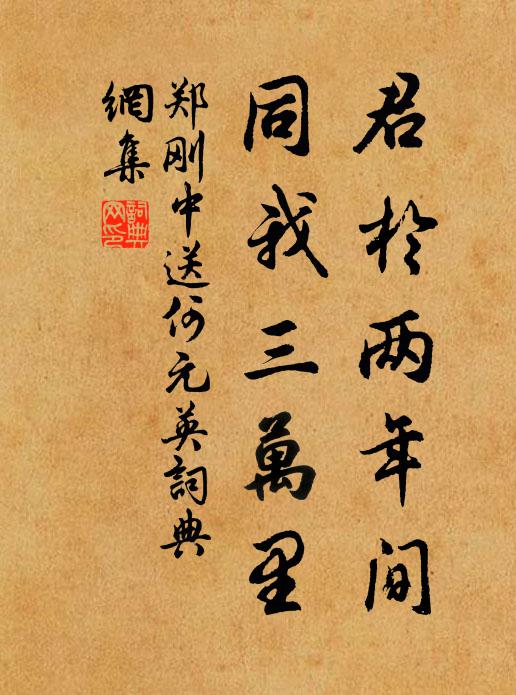 君於两年间
同我三萬里
郑刚中送何元英詞典
網集
詞典
网印